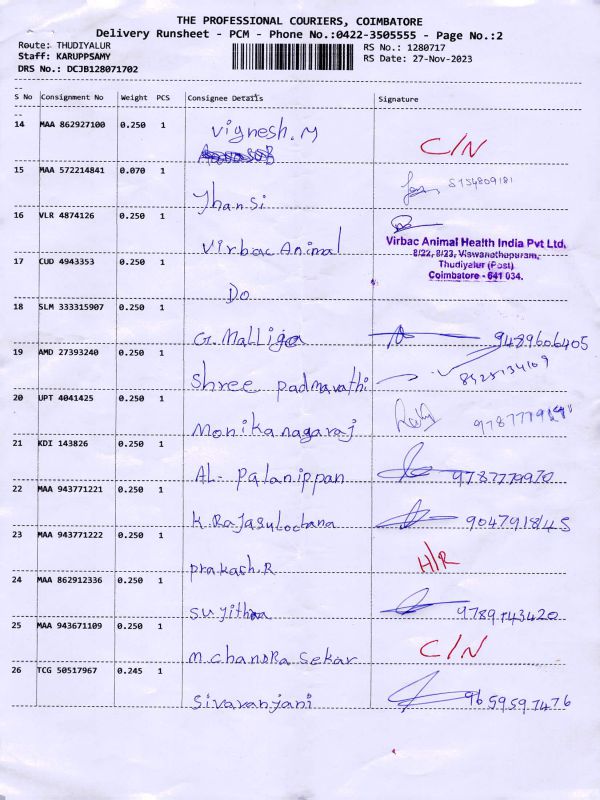 THE PROFESSIONAL COURIERS, COIMBATORE
Delivery Runsheet - PCM - Phone No.:0422-3505555 - Page No.:2
Route: THUDIYALUR
Staff: KARUPPSAMY
DRS No.: DCJB128071702
RS No.: 1280717
RS Date: 27-Nov-2023
S No Consignment No Weight PCS Consignee Details Signature
14 MAA 862927100 0.250 1 Vignesh.M C/N
15 MAA 572214841 0.070 1 Jhansi
16 VLR 4874126 0.250 1 Virbac Animal
Virbac Animal Health India Pvt Ltd.
8/22, 8/23, Viswanathapuram,
Thudiyalur (Post)
Coimbatore - 641 034.
17 CUD 4943353 0.250 1 Do
18 SLM 333315907 0.250 1 G. Malliga 9489606405
19 AMD 27393240 0.250 1 Shree Padmavathi
20 UPT 4041425 0.250 1 Monika nagaraj
21 KDI 143826 0.250 1 AL- Palanippan 9787779970
22 MAA 943771221 0.250 1 K. Rajasulochana
23 MAA 943771222 0.250 1 prakash.R H/R
24 MAA 862912336 0.250 1 Sujitha 9789743420
25 MAA 943671109 0.250 1 M. Chandra Sekar C/N
26 TCG 50517967 0.245 1 Sivaranjani 9659597476